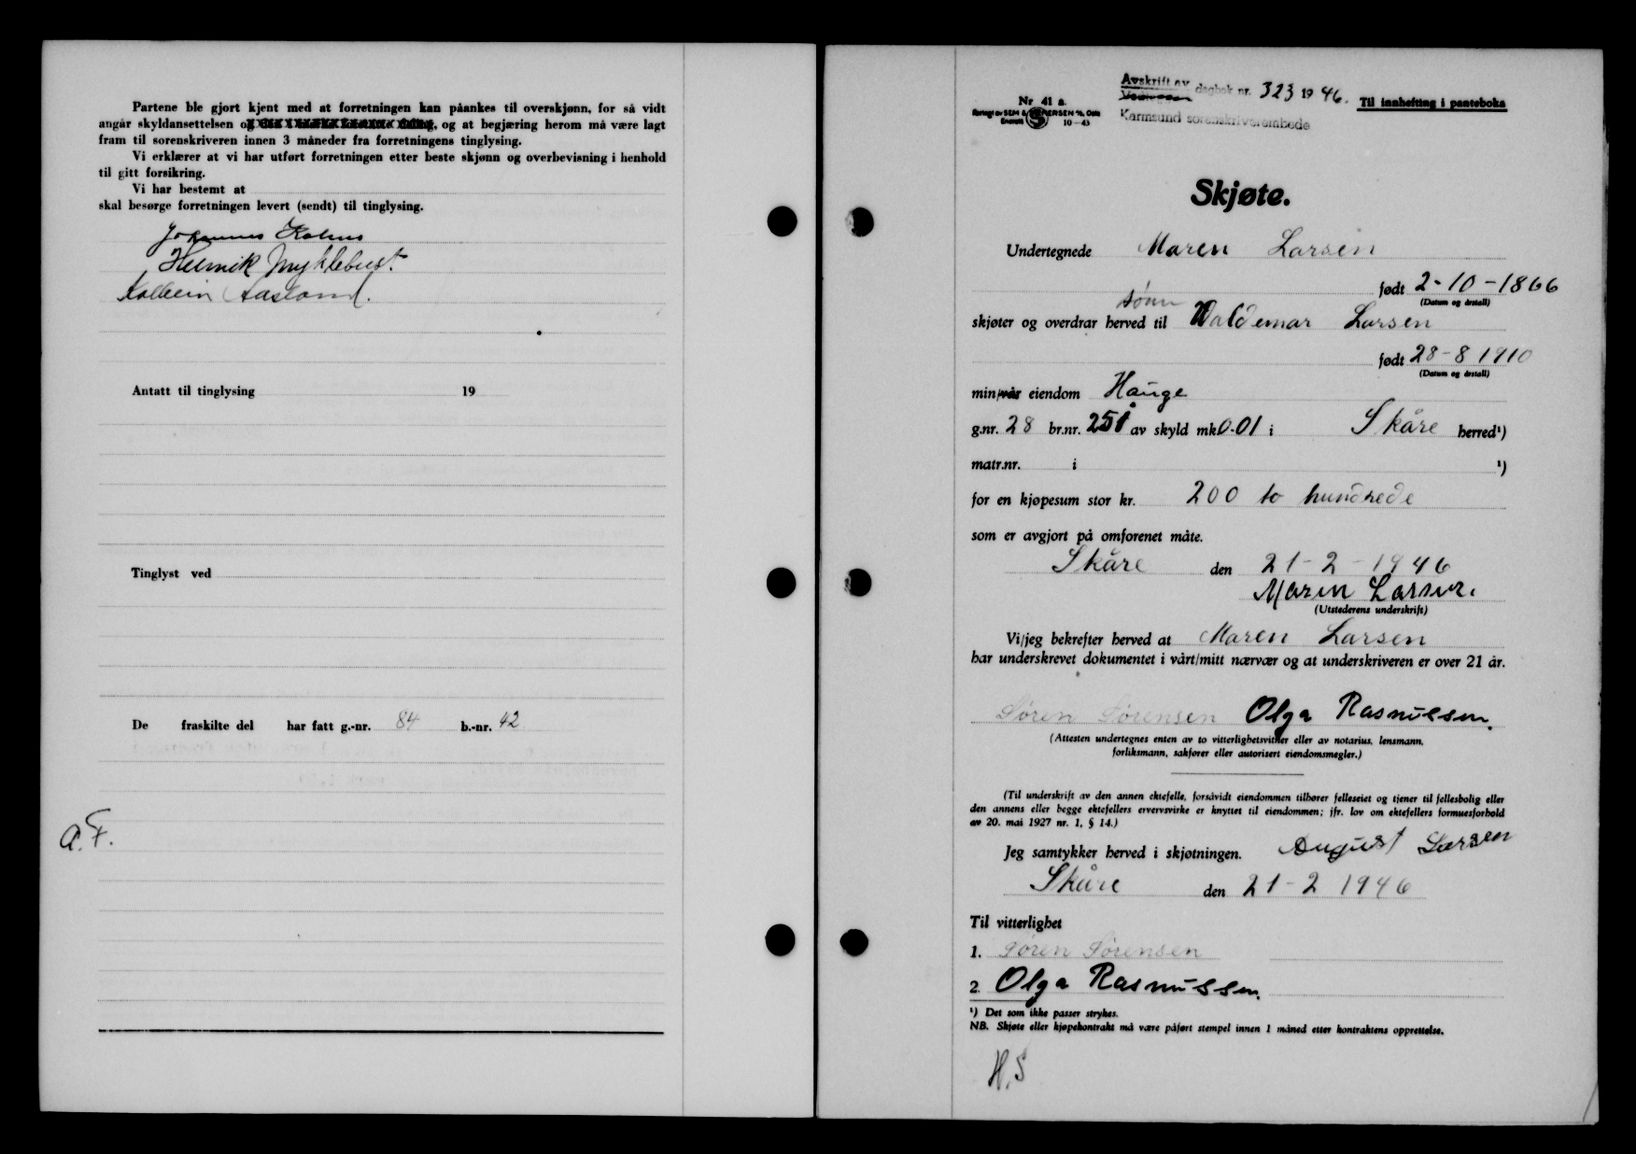 Partene ble gjort kjent med at forretningen kan påankes til overskjønn, for så vidt
angår skyldansettelsen og , og at begjæring herom må være lagt
fram til sorenskriveren innen 3 måneder fra forretningens tinglysing.
Vi erklærer at vi har utført forretningen etter beste skjønn og overbevisning i henhold
til gitt forsikring.
Vi har bestemt at
skal besørge forretningen levert (sendt) til tinglysing.
Johannes
Helmik Myklebust.
Kolbein Aasland.
Antatt til tinglysing 19
Tinglyst ved
De fraskilte del har fått g.-nr. 84 b.-nr. 42
a.F.
Avskrift av dagbok nr. 323 1946. Til innhefting i panteboka
Karmsund sorenskriverembede
Nr 41 a.
10-43
Skjøte.
Undertegnede Maren Larsen
født 2-10-1866
(Datum og årstall)
sønn
skjøter og overdrar herved til Waldemar Larsen
født 28-8 1910
(Datum og årstall)
min/vår eiendom Hauge
g.nr. 28 br.nr. 251 av skyld mk 0.01 i Skåre herred¹)
matr.nr. i ¹)
for en kjøpesum stor kr. 200 to hundrede
som er avgjort på omforenet måte.
Skåre den 21-2-1946
Maren Larsen.
(Utstederens underskrift)
Vi/jeg bekrefter herved at Maren Larsen
har underskrevet dokumentet i vårt/mitt nærvær og at underskriveren er over 21 år.
Søren Sørensen Olga Rasmussen.
(Attesten undertegnes enten av to vitterlighetsvitner eller av notarius, lensmann,
forliksmann, sakfører eller autorisert eiendomsmegler.)
(Til underskrift av den annen ektefelle, forsåvidt eiendommen tilhører felleseiet og tjener til fellesbolig eller
den annens eller begge ektefellers ervervsvirke er knyttet til eiendommen; jfr. lov om ektefellers formuesforhold
av 20. mai 1927 nr. 1, § 14.)
Jeg samtykker herved i skjøtningen. August Larsen
Skåre den 21-2 1946
Til vitterlighet
1. Søren Sørensen
2. Olga Rasmussen.
¹) Det som ikke passer strykes.
NB. Skjøte eller kjøpekontrakt må være påført stempel innen 1 måned etter kontraktens opprettelse.
H.S